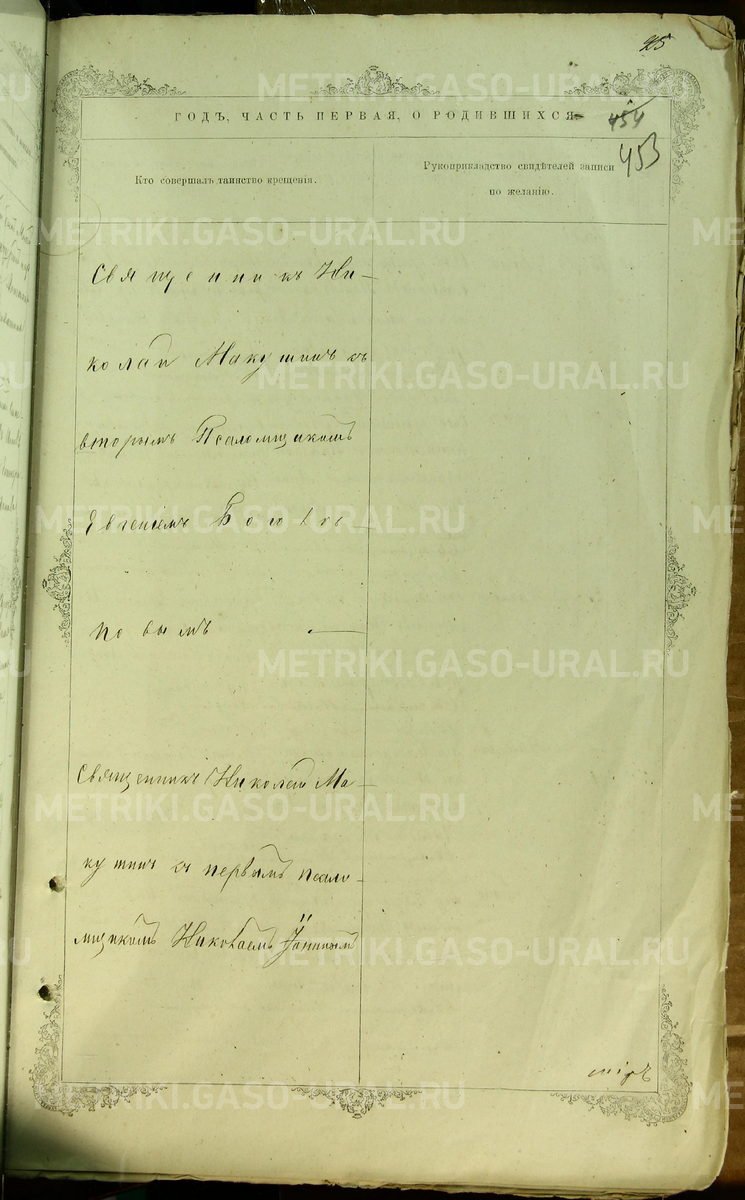 95
ГОДЪ, ЧАСТЬ ПЕРВАЯ, О РОДИВШИХСЯ
454
453
Кто совершалъ таинство крещенія.
Рукоприкладство свидѣтелей записи
по желанію.
Священникъ Ни–
колай Макушинъ съ
вторымъ Псаломщикомъ
Евгеніемъ
повымъ
Священникъ Николай Ма–
кушинъ съ первымъ псало–
мщикомъ Николаемъ
METRIKI.GASO-URAL.RU